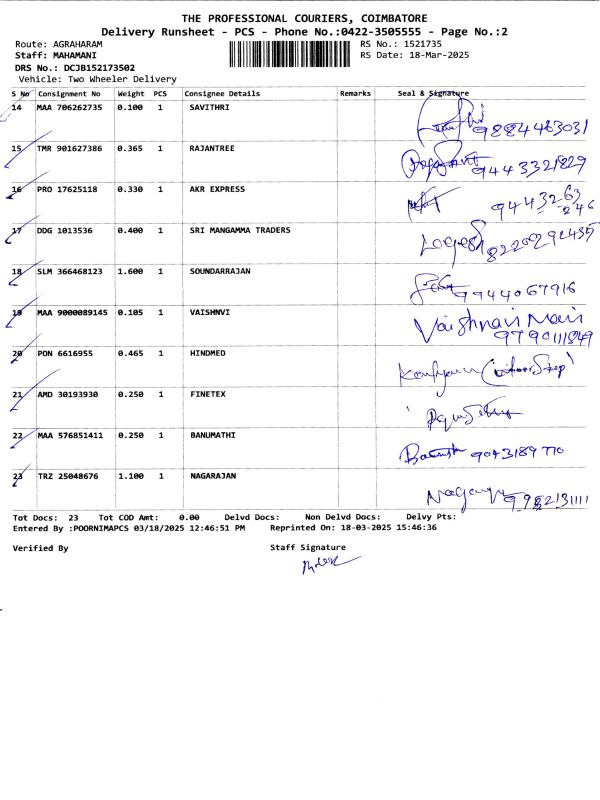 THE PROFESSIONAL COURIERS, COIMBATORE
Delivery Runsheet - PCS - Phone No.:0422-3505555 - Page No.:2
Route: AGRAHARAM RS No.: 1521735
Staff: MAHAMANI RS Date: 18-Mar-2025
DRS No.: DCJB152173502
Vehicle: Two Wheeler Delivery
S No Consignment No Weight PCS Consignee Details Remarks Seal & Signature
14 MAA 706262735 0.100 1 SAVITHRI
9884483031
15 TMR 901627386 0.365 1 RAJANTREE
9443321829
16 PRO 17625118 0.330 1 AKR EXPRESS
9443263
246
17 DDG 1013536 0.400 1 SRI MANGAMMA TRADERS
18 SLM 366468123 1.600 1 SOUNDARRAJAN
9944067916
19 MAA 9000089145 0.105 1 VAISHNVI
Vaishnavi Nair
9790111849
20 PON 6616955 0.465 1 HINDMED
21 AMD 30193930 0.250 1 FINETEX
22 MAA 576851411 0.250 1 BANUMATHI
9043189770
23 TRZ 25048676 1.100 1 NAGARAJAN
Tot Docs: 23 Tot COD Amt: 0.00 Delvd Docs: Non Delvd Docs: Delvy Pts:
Entered By :POORNIMAPCS 03/18/2025 12:46:51 PM Reprinted On: 18-03-2025 15:46:36
Verified By Staff Signature